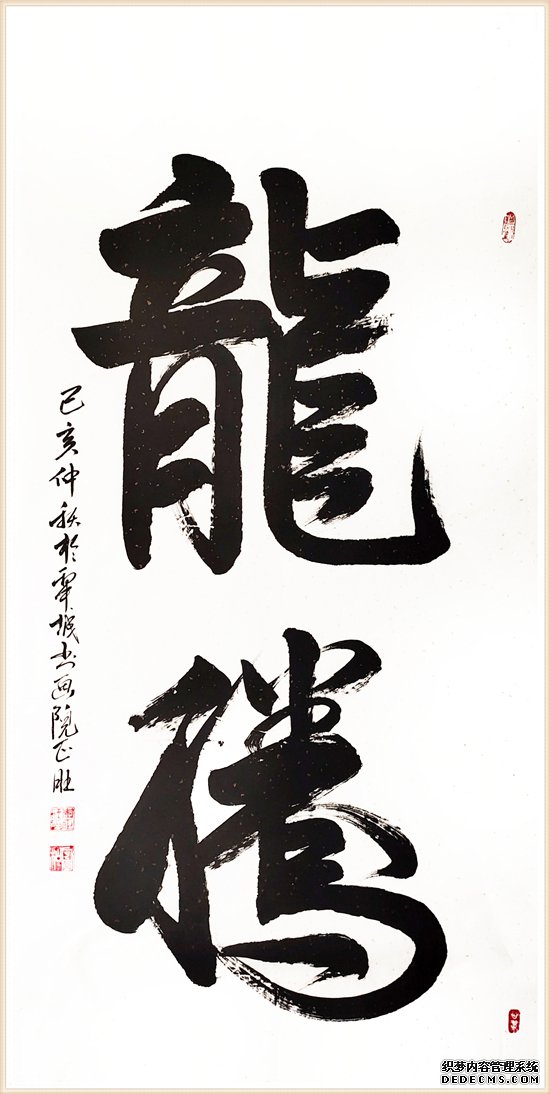 龍
騰
己亥仲秋於
书画院正旺
织梦内容管理系统
DEDECMS.COM